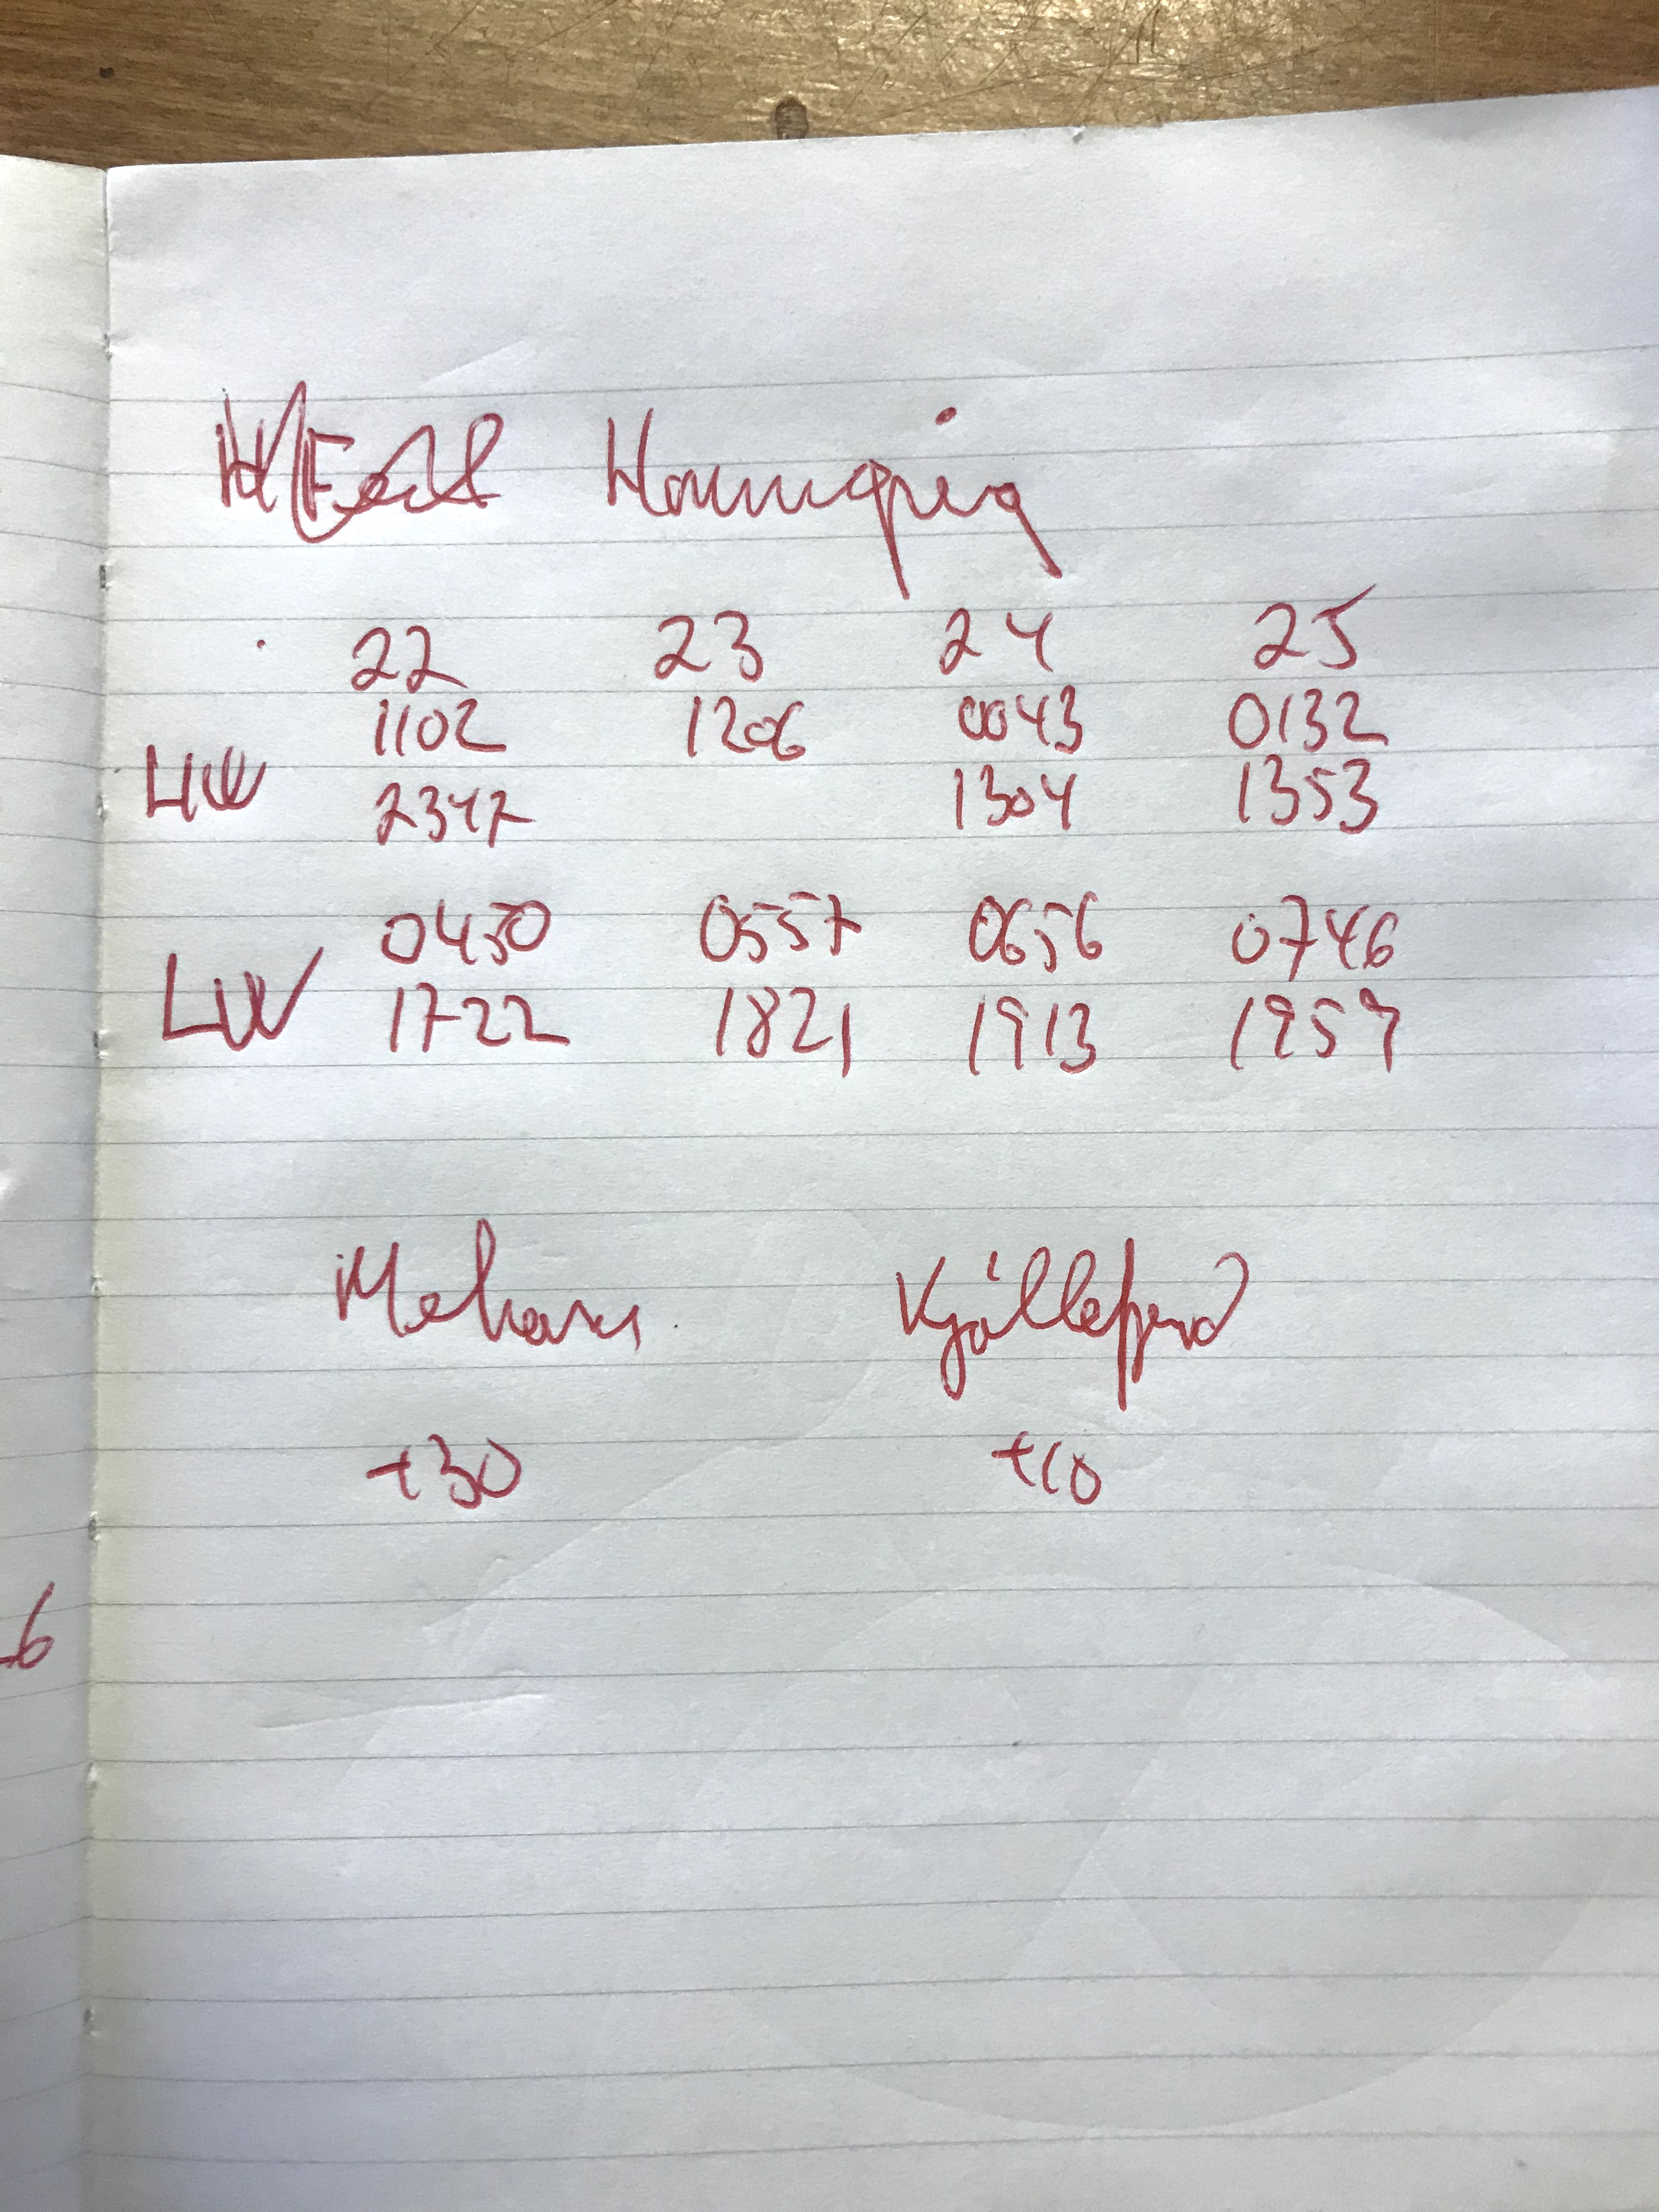 Honningsvåg
22 23 24 25
1102 1206 0043 0132
HW 2347 1304 1353
0450 0557 0656 0746
LW 1722 1821 1913 1957
Mehamn Kjøllefjord
+30 +10
6